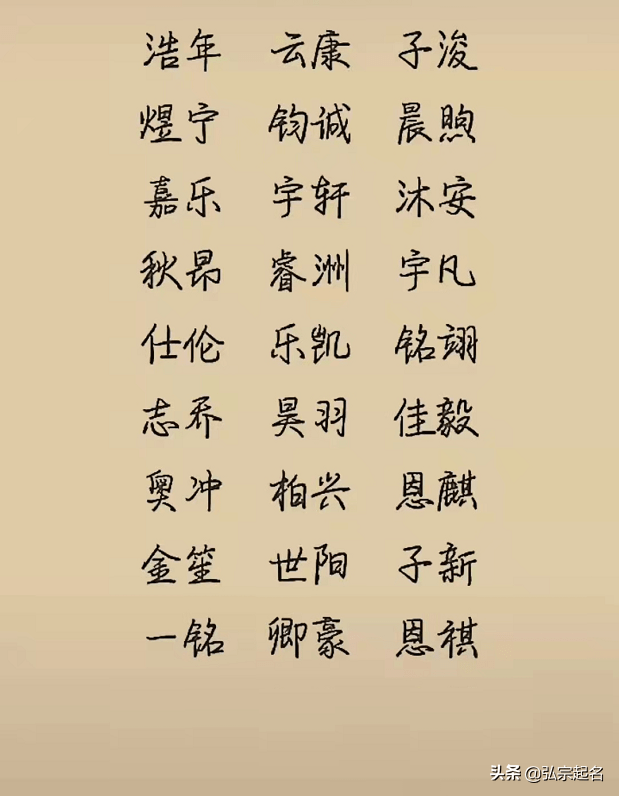 浩年 云康 子浚
煜宁 钧诚 晨煦
嘉乐 宇轩 沐安
秋昂 睿洲 宇凡
仕伦 乐凯 铭翊
志乔 昊羽 佳毅
奥冲 柏兴 恩麒
金笙 世阳 子新
一铭 卿豪 恩祺
头条 @弘宗起名